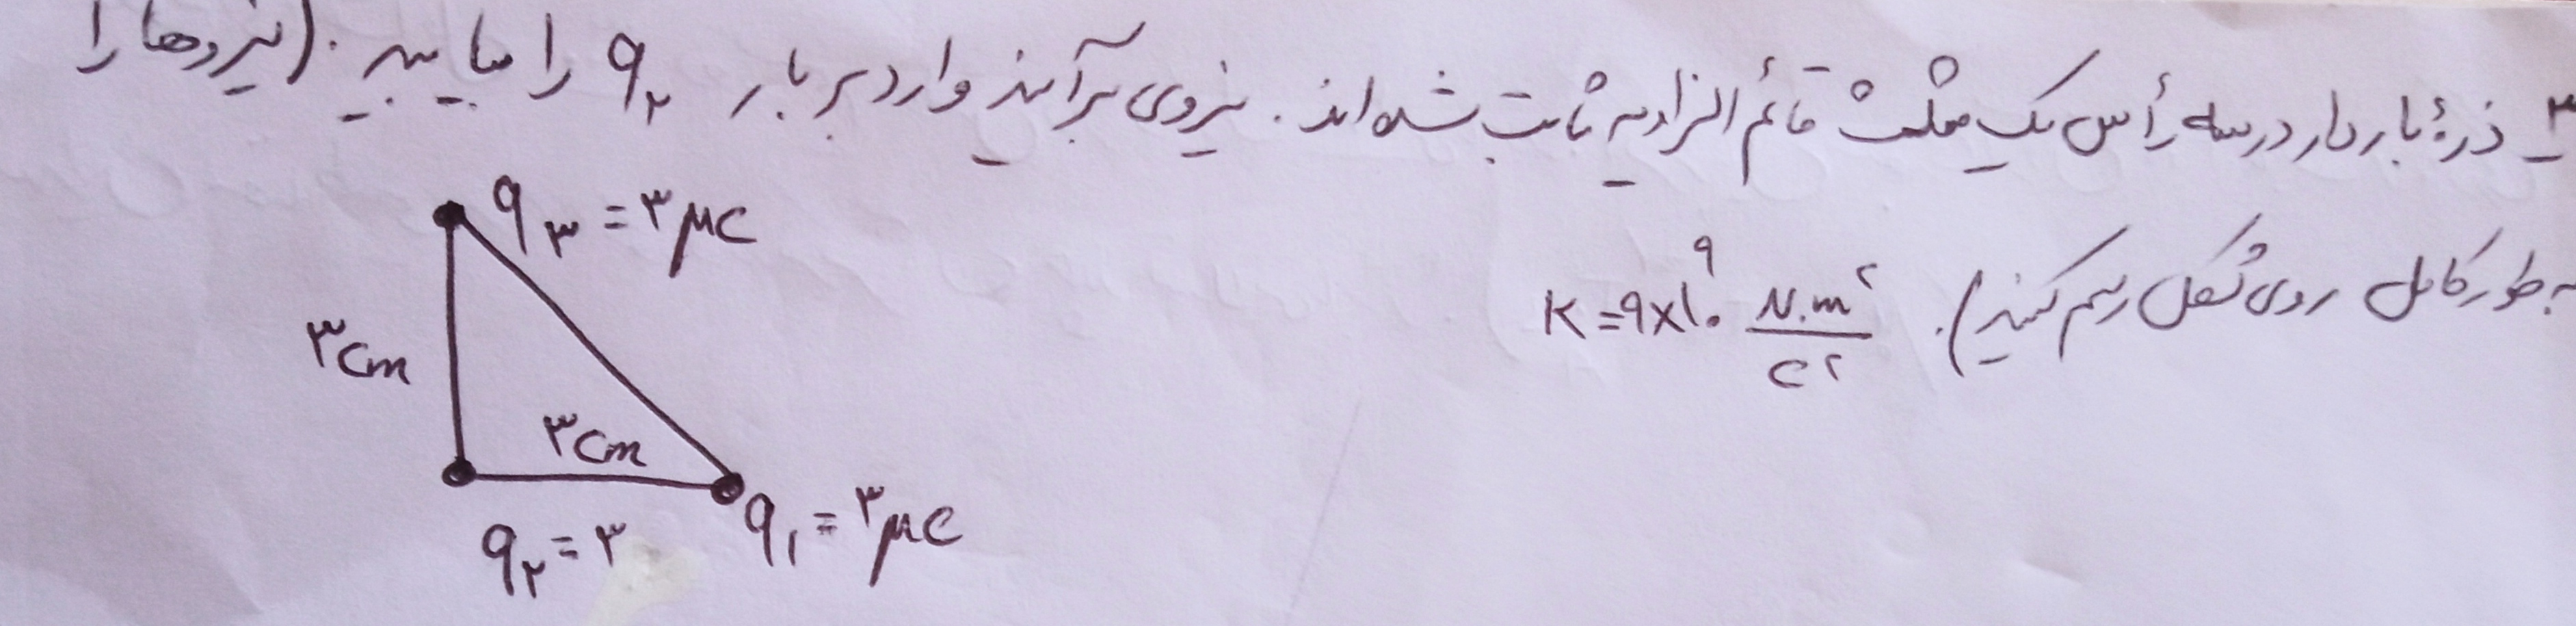 ۳ ذرهٔ باردار در سه رأس یک مثلث قائم الزاویه ثابت شده اند. نیروی برآیند وارد بر بار q۲ را بیابید. (نیروها را
به طور کامل روی شکل رسم کنید). K=۹×۱۰^۹ N.m^۲/C^۲
q۳ = ۳μC
۳cm
۳cm
q۲ = ۳
q۱ = ۳μC